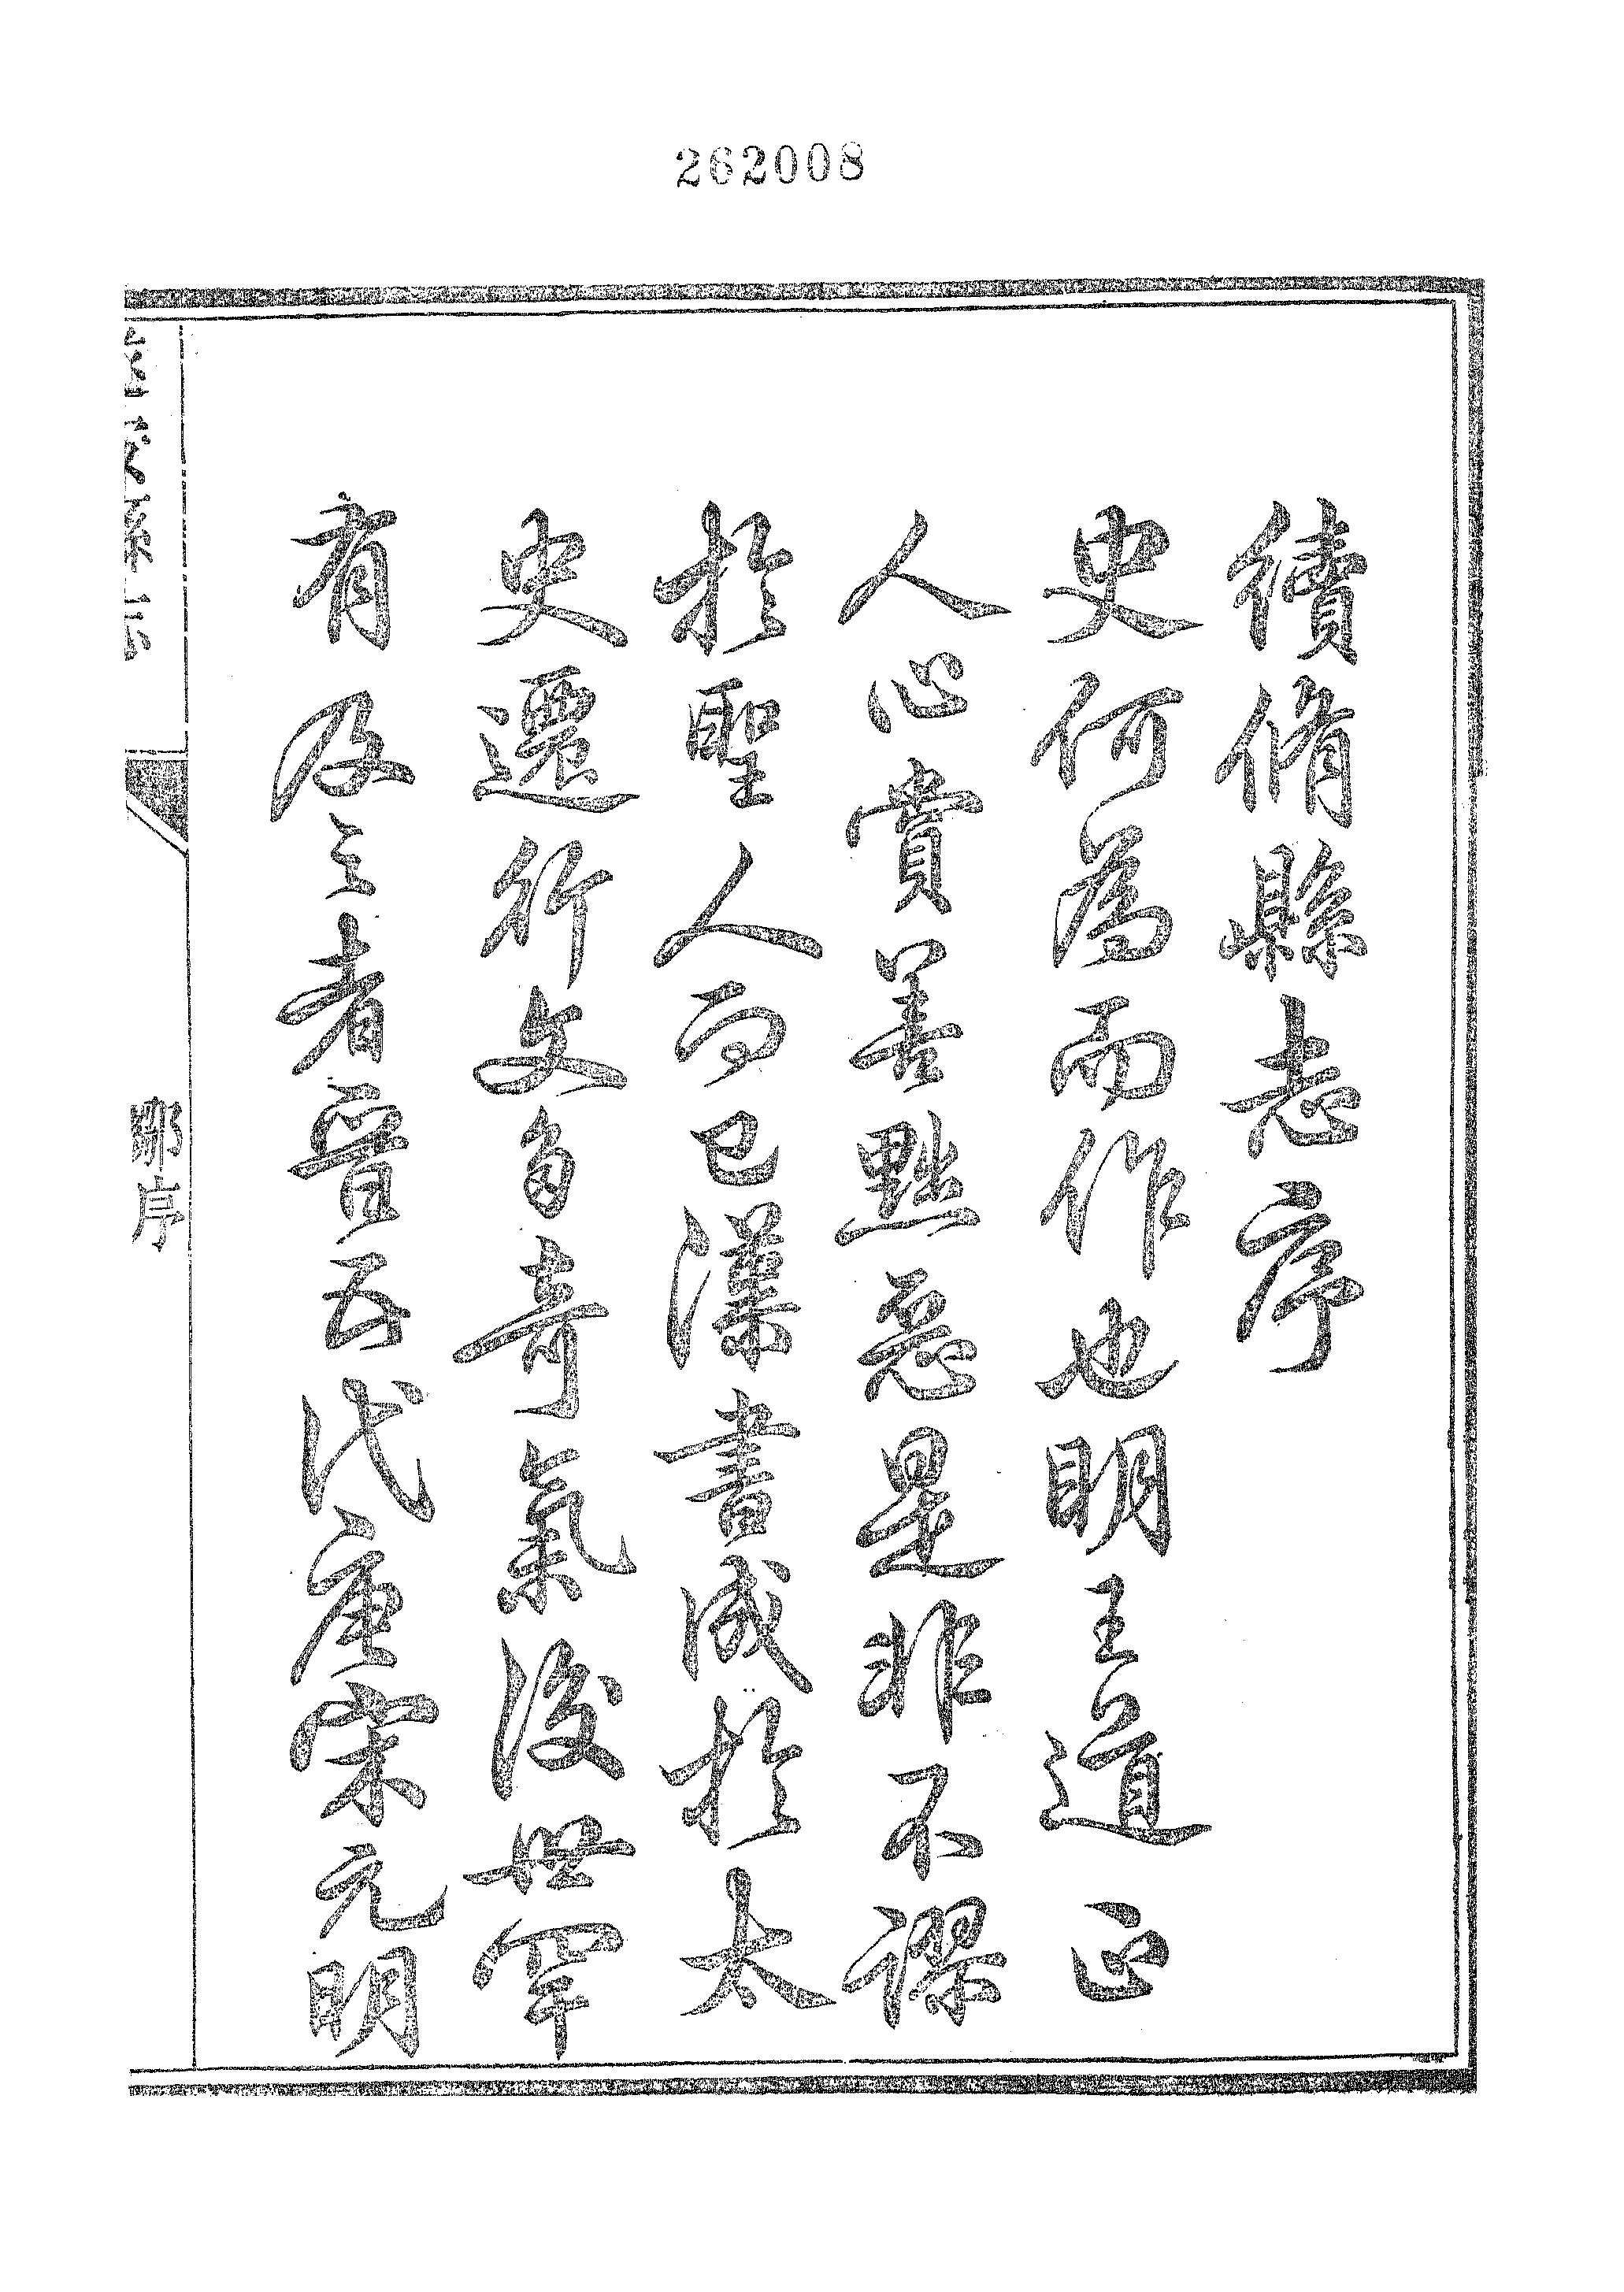 262008
續脩縣志序
史何為而作也明王道正
人心賞善黜惡是非不謬
於聖人而已漢書成於太
史遷行文多奇氣後世罕
有及之者晉五代唐宋元明
縣志
鄭序